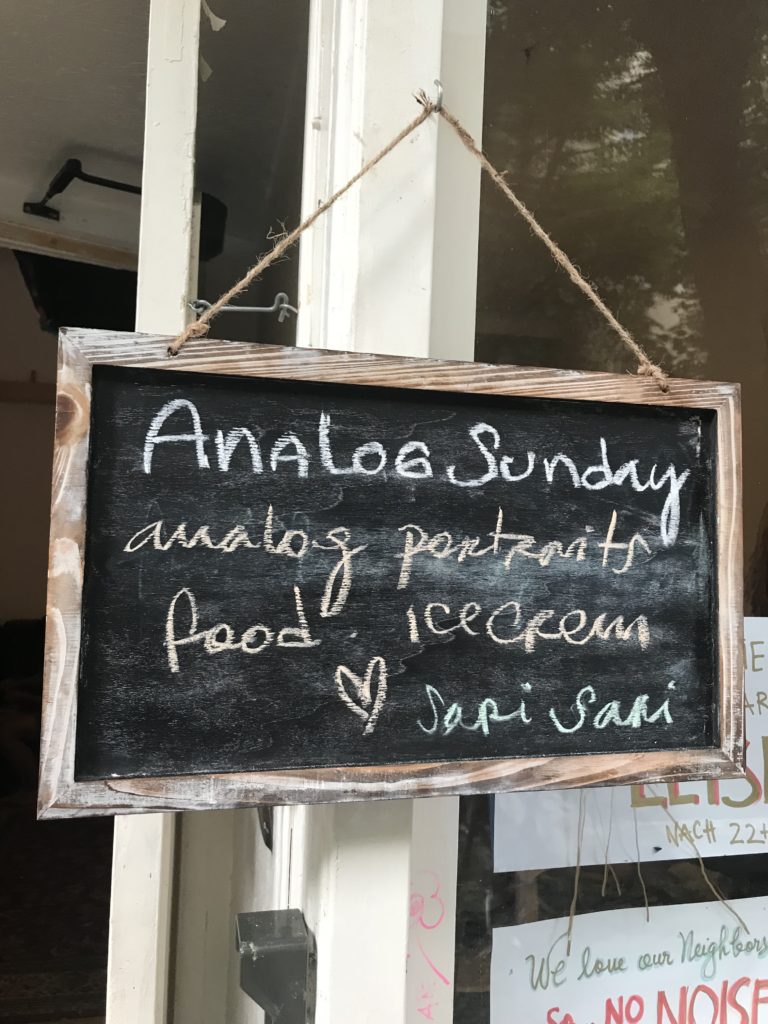 Analog Sunday
analog portraits
food. icecream
♡ Sari Sari
NACH 22
We love our Neighbors
So NO NOISE